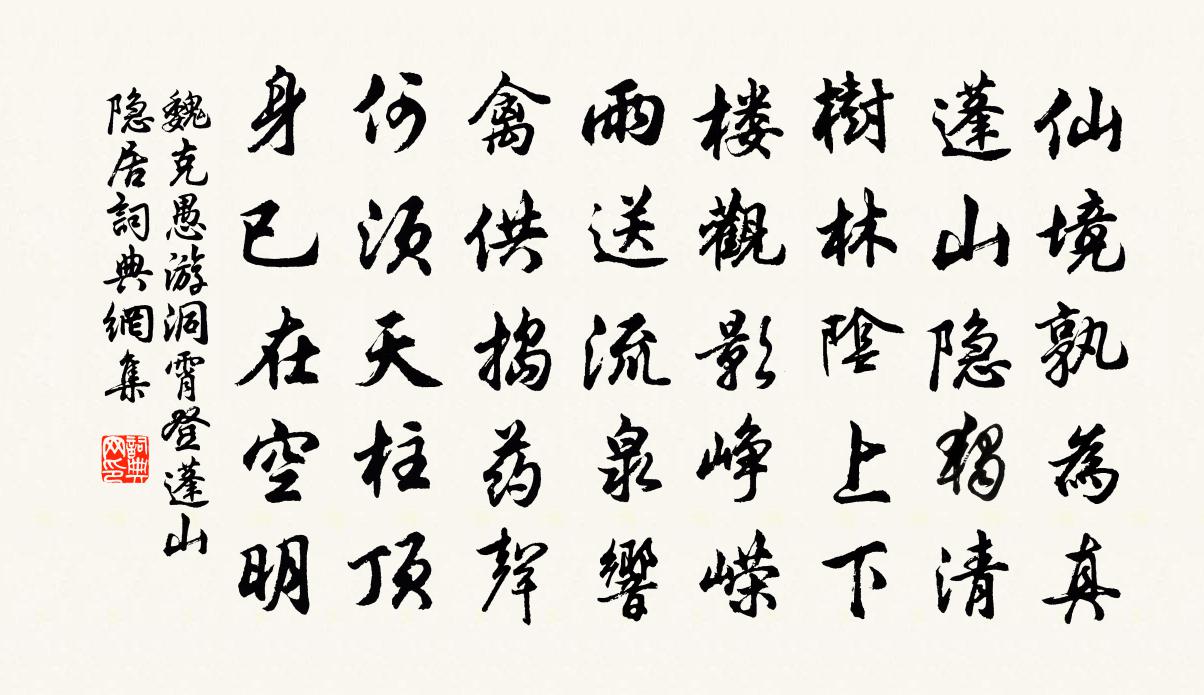 仙境孰為真
蓬山隐獨清
樹林陰上下
楼觀影峥嶸
雨送流泉響
禽供搗药聲
何须天柱顶
身已在空明
魏克愚游洞霄登蓬山
隐居詞典網集
詞典
网印